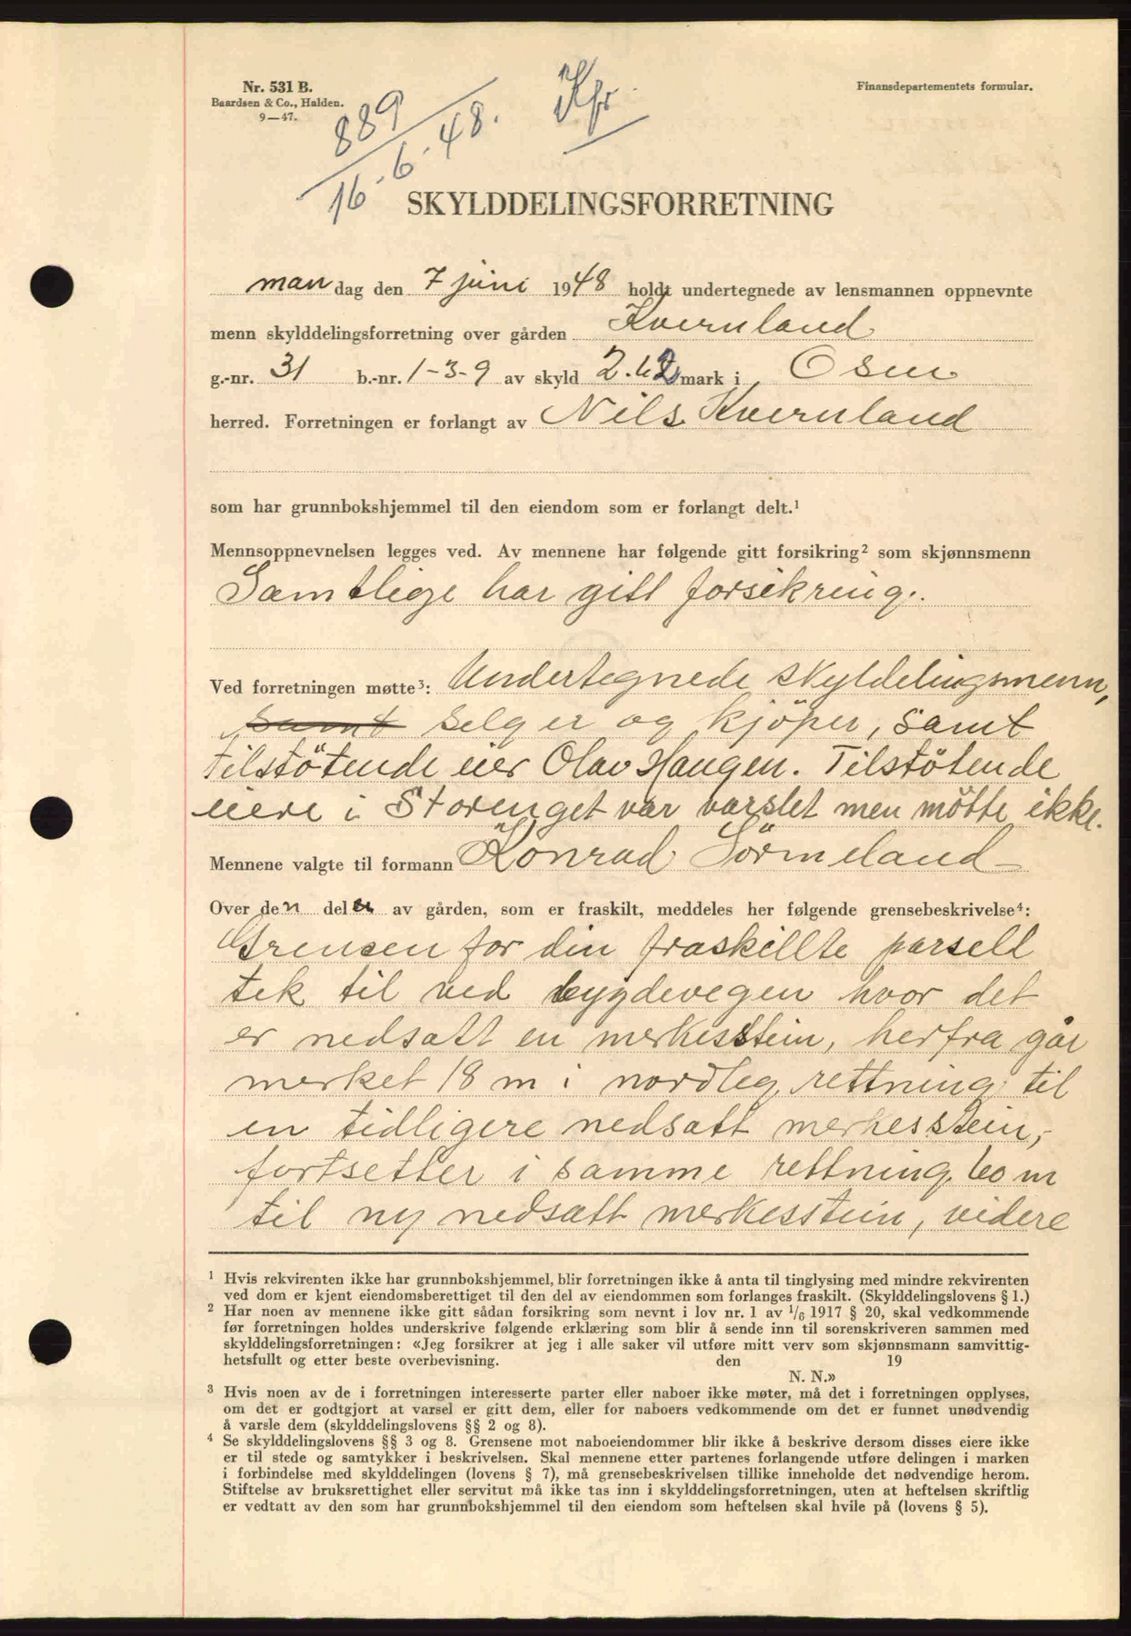 Nr. 531 B.
Baardsen & Co., Halden.
9—47.
Finansdepartementets formular.
889
16-6-48.
Kfr
SKYLDDELINGSFORRETNING
mandag den 7 juni 1948 holdt undertegnede av lensmannen oppnevnte
menn skylddelingsforretning over gården Kvernland
g.-nr. 31 b.-nr. 1-3-9 av skyld 2.62 mark i Osen
herred. Forretningen er forlangt av Nils Kvernland
som har grunnbokshjemmel til den eiendom som er forlangt delt.¹
Mennsoppnevnelsen legges ved. Av mennene har følgende gitt forsikring² som skjønnsmenn
Samtlige har gitt forsikring.
Ved forretningen møtte³: Undertegnede skyldelingsmenn,
samt selger og kjöper, samt
tilstötende eier Olav Haugen. Tilstötende
eiere i Storenget var varslet men mötte ikke.
Mennene valgte til formann Konrad Sörmeland
Over den del av gården, som er fraskilt, meddeles her følgende grensebeskrivelse⁴:
Grensen for den fraskillte parsell
tek til ved bygdevegen hvor det
er nedsatt en merkesstein, herfra går
merket 18 m i nordleg rettning til
en tidligere nedsatt merkesstein,
fortsetter i samme rettning 60 m
til ny nedsatt merkesstein, videre
¹ Hvis rekvirenten ikke har grunnbokshjemmel, blir forretningen ikke å anta til tinglysing med mindre rekvirenten
ved dom er kjent eiendomsberettiget til den del av eiendommen som forlanges fraskilt. (Skylddelingslovens § 1.)
² Har noen av mennene ikke gitt sådan forsikring som nevnt i lov nr. 1 av 1/6 1917 § 20, skal vedkommende
før forretningen holdes underskrive følgende erklæring som blir å sende inn til sorenskriveren sammen med
skylddelingsforretningen: «Jeg forsikrer at jeg i alle saker vil utføre mitt verv som skjønnsmann samvittig-
hetsfullt og etter beste overbevisning. den 19
N. N.»
³ Hvis noen av de i forretningen interesserte parter eller naboer ikke møter, må det i forretningen opplyses,
om det er godtgjort at varsel er gitt dem, eller for naboers vedkommende om det er funnet unødvendig
å varsle dem (skylddelingslovens §§ 2 og 8).
⁴ Se skylddelingslovens §§ 3 og 8. Grensene mot naboeiendommer blir ikke å beskrive dersom disses eiere ikke
er til stede og samtykker i beskrivelsen. Skal mennene etter partenes forlangende utføre delingen i marken
i forbindelse med skylddelingen (lovens § 7), må grensebeskrivelsen tillike inneholde det nødvendige herom.
Stiftelse av bruksrettighet eller servitut må ikke tas inn i skylddelingsforretningen, uten at heftelsen skriftlig
er vedtatt av den som har grunnbokshjemmel til den eiendom som heftelsen skal hvile på (lovens § 5).